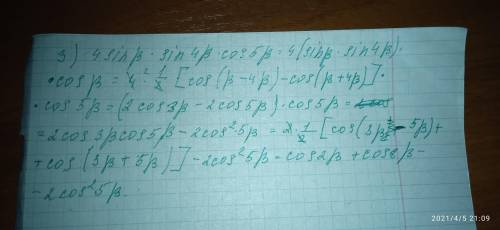 3) 4 sinβ · sin 4β · cos 5β = 4 (sinβ · sin 4β) ·
· cos β = 4 · 1/2 [cos (β - 4β) - cos (β + 4β)] ·
· cos 5β = (2 cos 3β - 2 cos 5β) · cos 5β =
= 2 cos 3β cos 5β - 2 cos² 5β = 2 · 1/2 [cos (3β - 5β) +
+ cos (3β + 5β)] - 2 cos² 5β = cos 2β + cos 8β -
- 2 cos² 5β.
2021/4/5 21:09